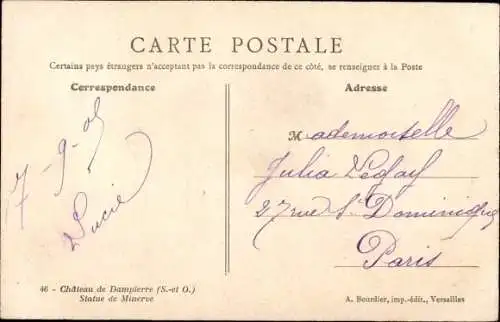 CARTE POSTALE
Certains pays étrangers n'acceptant pas la correspondance de ce côté, se renseigner à la Poste
Correspondance
7-9-05
Lucie
Adresse
Mademoiselle
Julia
27 rue St Dominique
Paris
46 - Château de Dampierre (S.-et O.)
Statue de Minerve
A. Bourdier, imp.-édit., Versailles